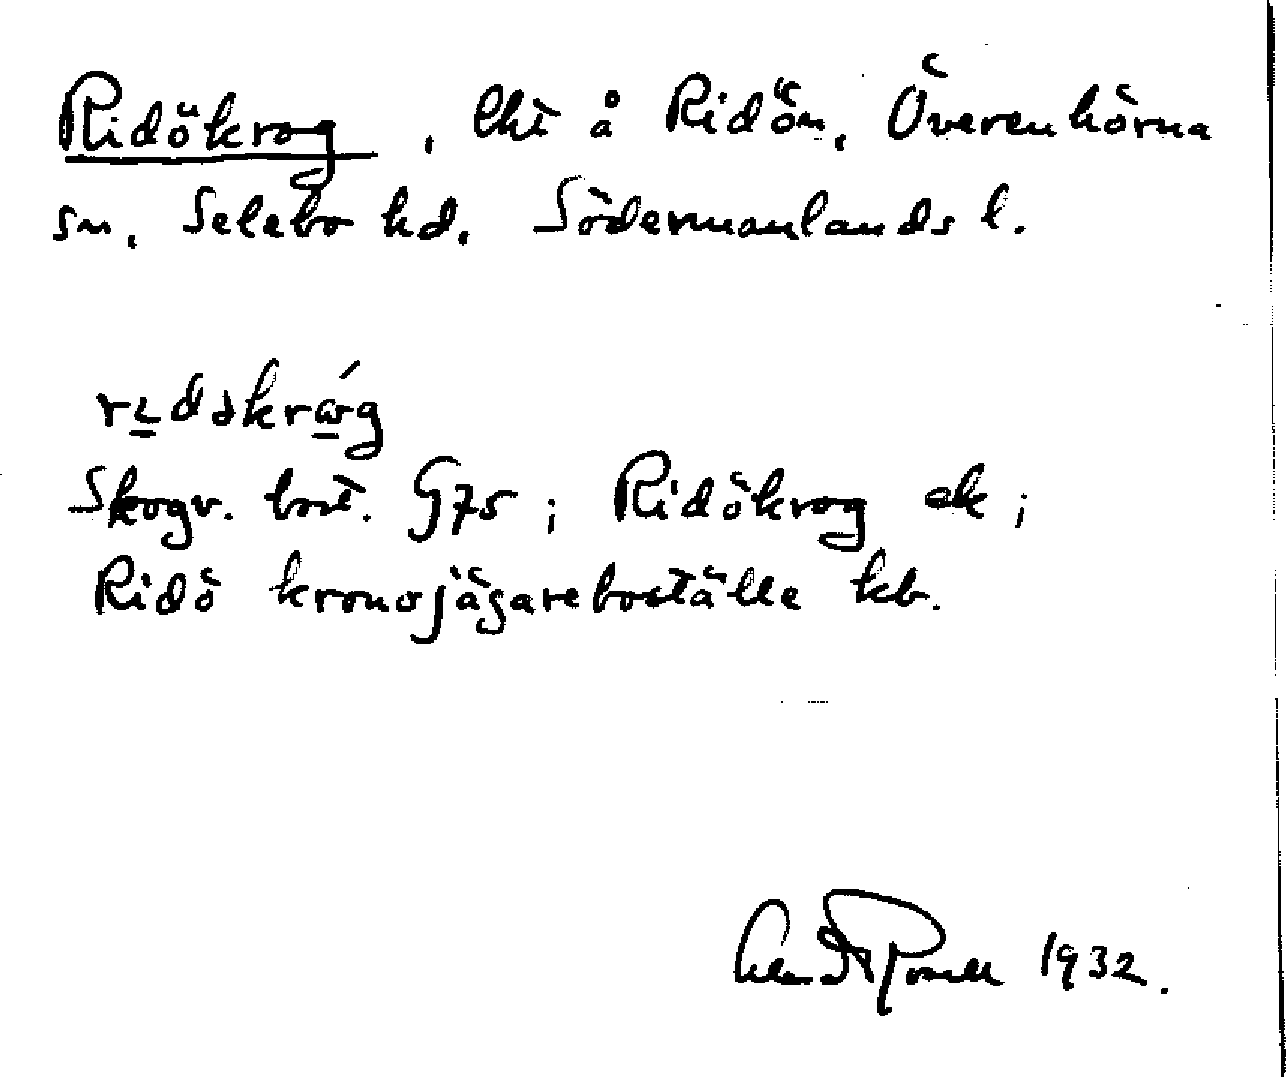 Ridökrog, lht å Ridön, Överenhörna
sn, Selebo hd. Södermanlands l.
Skogv. bost. G75; Ridökrog ek;
Ridö kronojägareboställe kb.
1932.